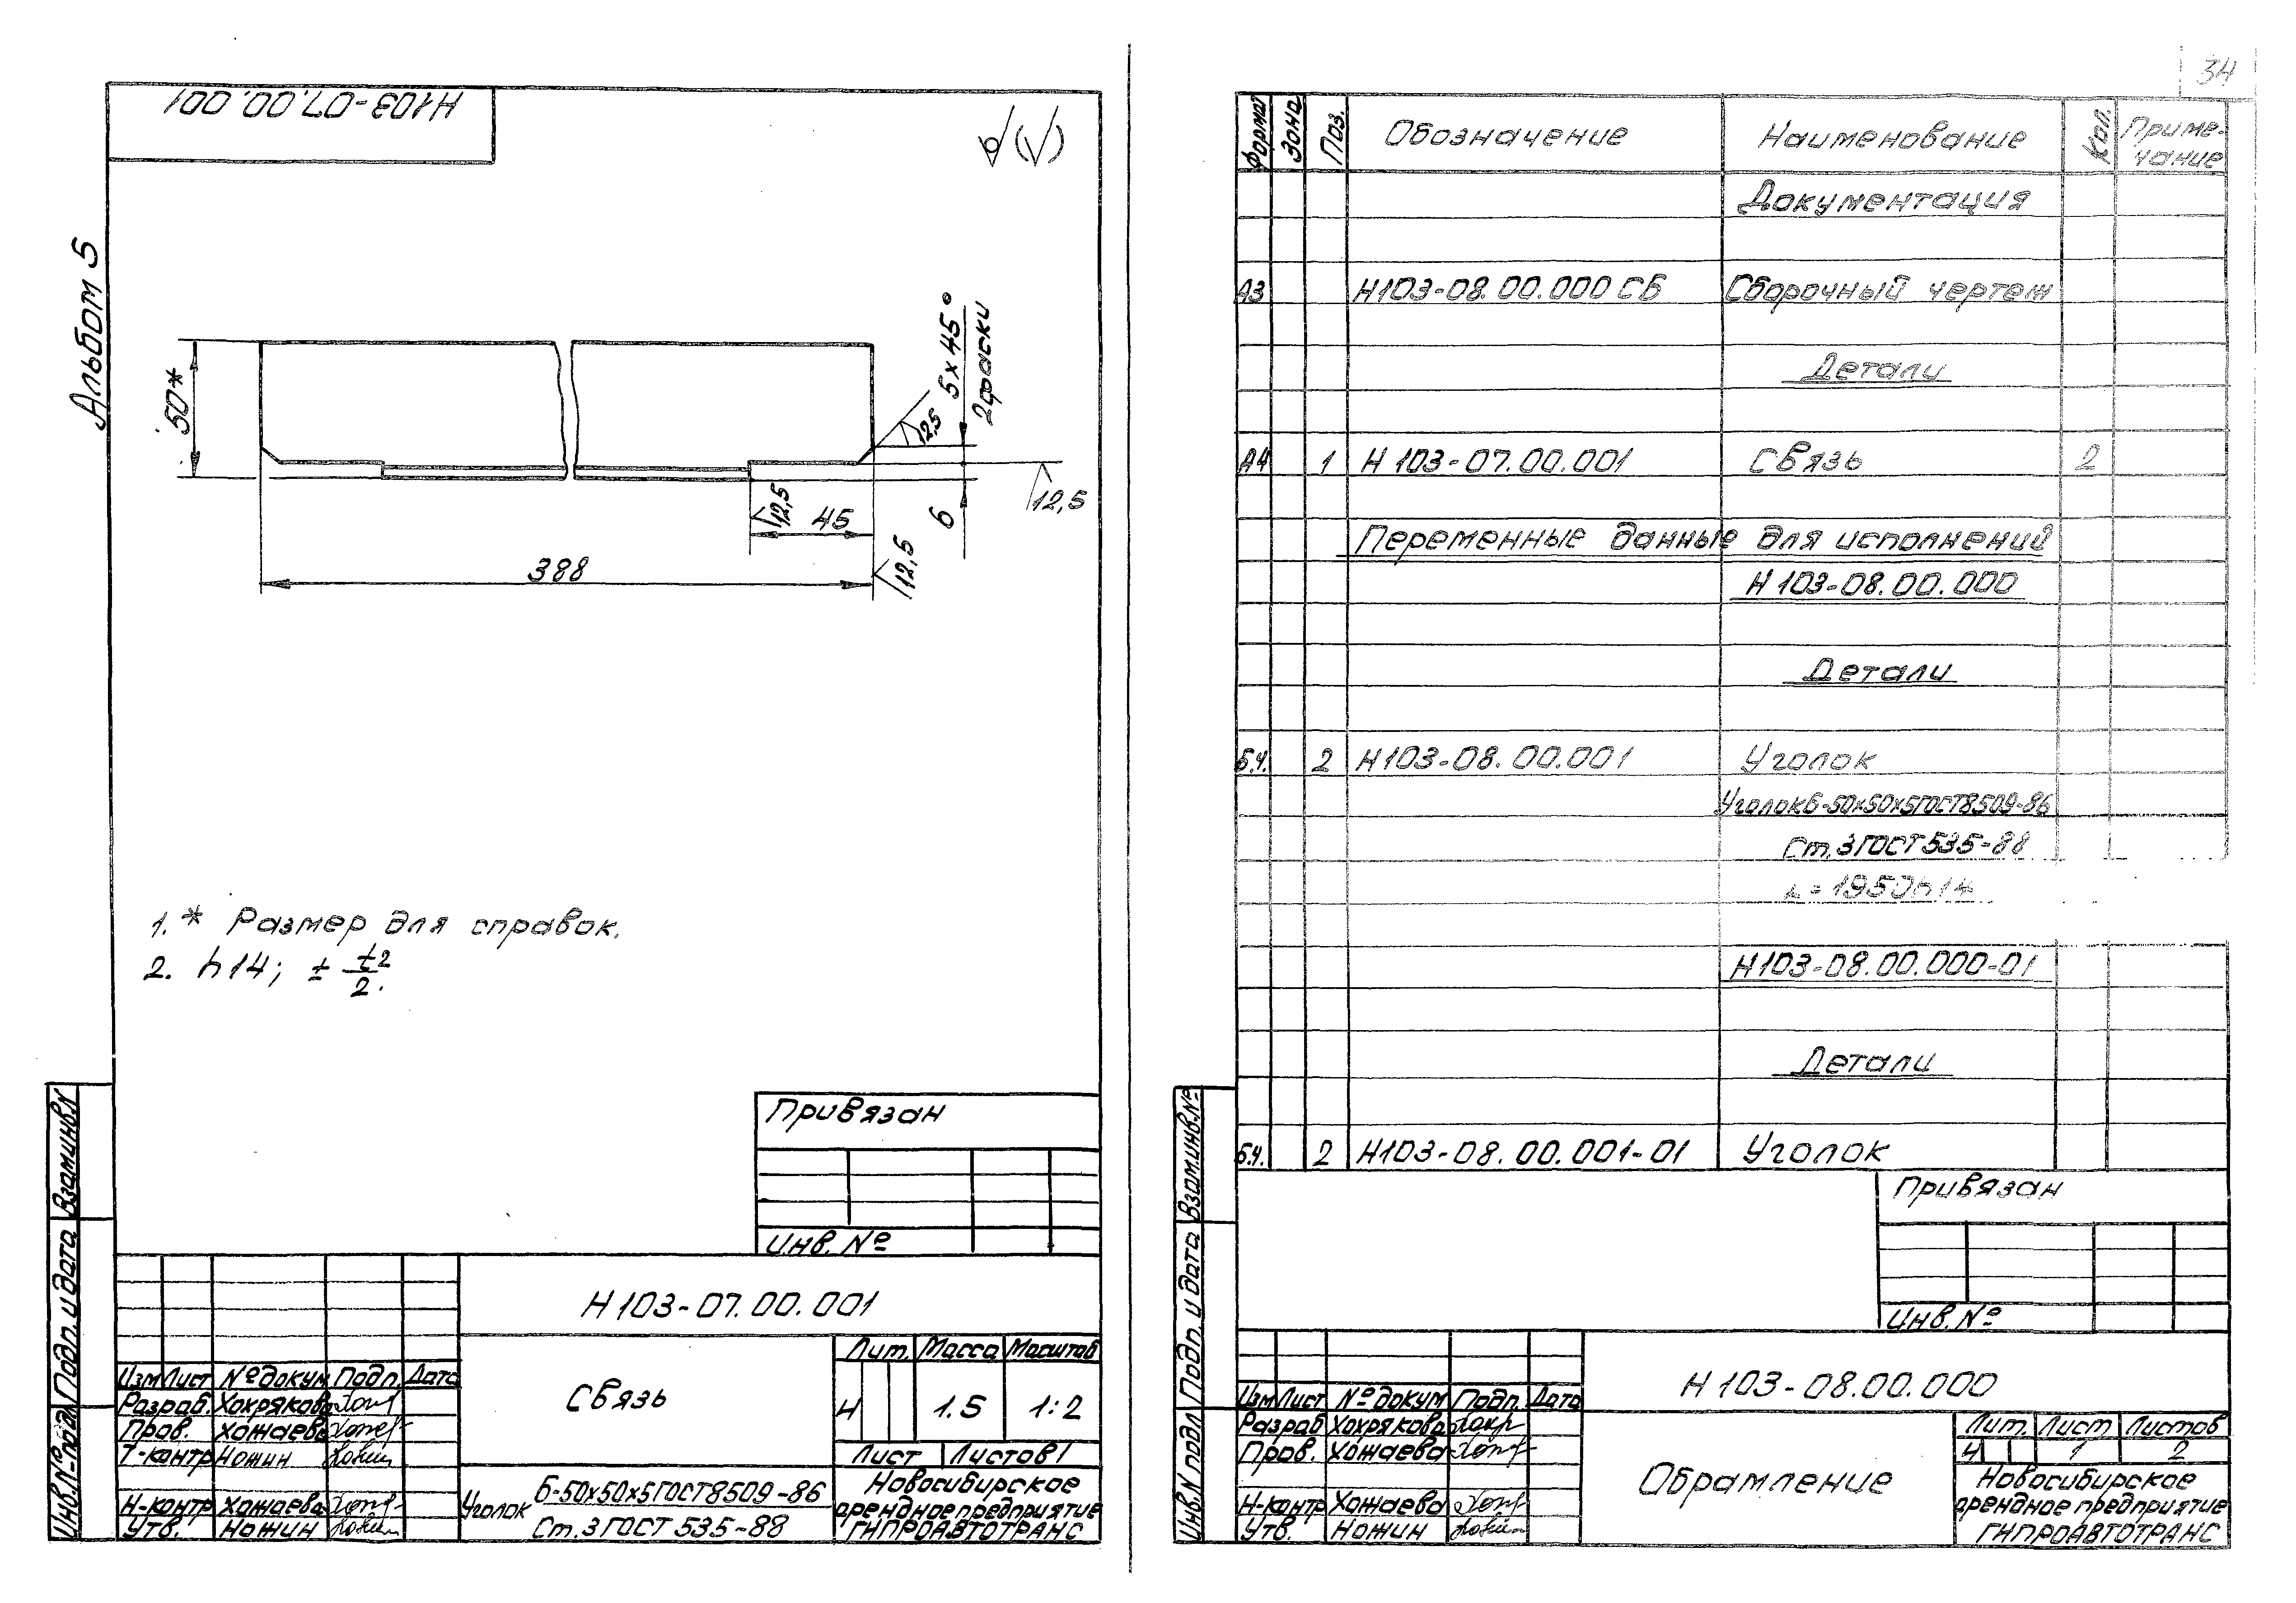 Н103-07.00.001
Альбом 5
50*
5×45°
2фаски
12,5
12,5
12,5
45
6
12,5
388
1.* Размер для справок.
2. h14; ± t2/2.
Привязан
Инв. №
Н103-07.00.001
Лит. Масса Масштаб
Связь
И 1.5 1:2
Лист Листов 1
Изм Лист № докум Подп. Дата
Разраб. Хохрякова
Пров. Хожаева
Т-контр Ножин
Н-контр Хожаева
Утв. Ножин
Уголок Б-50×50×5 ГОСТ 8509-86
Ст.3 ГОСТ 535-88
Новосибирское
арендное предприятие
ГИПРОАВТОТРАНС
Взам.инв.N
Подп. и дата
Инв.№ подл
34
Формат Зона Поз. Обозначение Наименование Кол. Приме-
чание
Документация
А3 Н103-08.00.000 СБ Сборочный чертеж
Детали
А4 1 Н103-07.00.001 Связь 2
Переменные данные для исполнений
Н103-08.00.000
Детали
Б.Ч. 2 Н103-08.00.001 Уголок
Уголок Б-50×50×5 ГОСТ 8509-86
Ст.3 ГОСТ 535-88
L=1950h14
Н103-08.00.000-01
Детали
Б.Ч. 2 Н103-08.00.001-01 Уголок
Привязан
Инв. №
Н103-08.00.000
Изм Лист № докум Подп. Дата
Разраб Хохрякова
Пров. Хожаева
Н-контр Хожаева
Утв. Ножин
Обрамление
Лит. Лист Листов
И 1 2
Новосибирское
арендное предприятие
ГИПРОАВТОТРАНС
Взам.инв.№
Подп. и дата
Инв.N подл